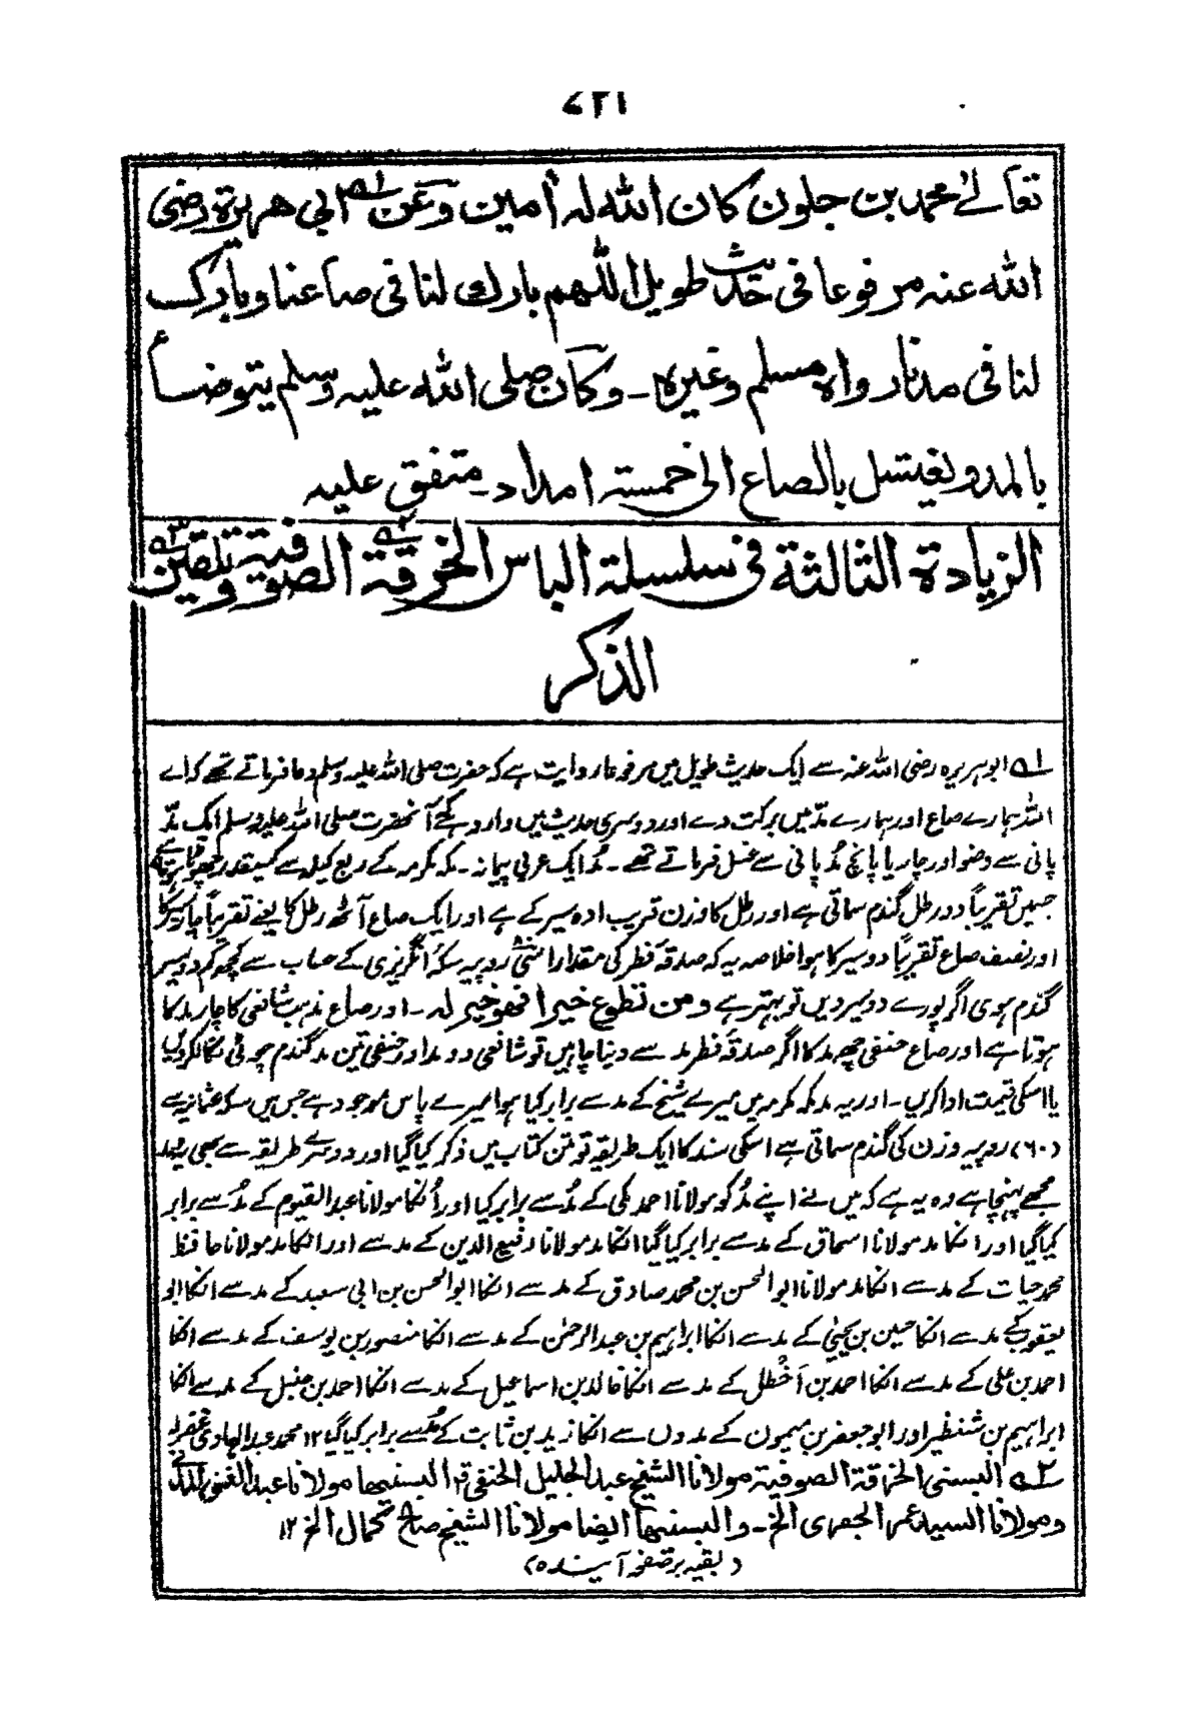 ٤٢١
تعالےٰ محمد بن جلون كان الله له أمين وعن له ابي هريرة رضى
الله عنه مرفوعا فى حديث طويل اللهم بارك لنا فى صاعنا وبارك
لنا فى مدنا رواه مسلم وغيره ـ وكان صلى الله عليه وسلم يتوضأ
بالمد ويغتسل بالصاع الى خمسة امداد ـ متفق عليه
الزيادة الثالثة فى سلسلة الباس الخرقة الصوفية وتلقين
الذكر
لہ ابوہریرہ رضی اللہ عنہ سے ایک حدیث طویل میں مرفوعا روایت ہے کہ حضرت صلی اللہ علیہ وسلم دعا فرماتے تھے کہ اے
اللہ ہمارے صاع اور ہمارے مدّ میں برکت دے اور دوسری حدیث میں وارد ہے کہ آنحضرت صلی اللہ علیہ وسلم ایک مدّ
پانی سے وضو اور چار یا پانچ مُد پانی سے غسل فرماتے تھے ـ مُد ایک عربی پیمانہ ـ مکہ مکرمہ کے ربع کیلہ سے کسیقدر چھوٹا ہوتا ہے
جسمیں تقریباً دو رطل گندم سماتی ہے اور رطل کا وزن قریب ادہ سیر کے ہے اور ایک صاع آٹھ رطل کا یعنے تقریباً چار سیر کا
اور نصف صاع تقریباً دو سیر کا ہوا خلاصہ یہ کہ صدقۂ فطر کی مقدار اسّی روپیہ سکۂ انگریزی کے حساب سے کچھ کم دو سیر
گندم ہوی اگر پورے دو سیر دیں تو بہتر ہے ومن تطوع خيرا فهو خير له ـ اور صاع مذہب شافعی کا چار مد کا
ہوتا ہے اور صاع حنفی چھ مد کا اگر صدقۂ فطر مد سے دینا چاہیں تو شافعی دو مد اور حنفی تین مد گندم
یا اسکی قیمت ادا کریں ـ اور یہ مد مکہ مکرمہ میں میرے شیخ کے مد سے برابر کیا ہوا میرے پاس موجود ہے جس میں سکۂ عثمانیہ سے
(٦٠) روپیہ وزن کی گندم سماتی ہے اسکی سند کا ایک طریقہ تو متن کتاب میں ذکر کیا گیا اور دوسرے طریقہ سے بھی یہ مد
مجھے پہنچا ہے وہ یہ ہے کہ میں نے اپنے مُد کو مولانا احمد مکی کے مُد سے برابر کیا اور اُنکا مولانا عبد القیوم کے مُد سے برابر
کیا گیا اور انکا مد مولانا اسحاق کے مد سے برابر کیا گیا انکا مد مولانا رفیع الدین کے مد سے اور انکا مد مولانا حافظ
محمد حیات کے مد سے انکا مد مولانا ابو الحسن بن محمد صادق کے مد سے انکا ابو الحسن بن ابی سعید کے مد سے انکا ابو
یعقوب کے مد سے انکا حسین بن یحییٰ کے مد سے انکا ابراہیم بن عبد الرحمٰن کے مد سے انکا منصور بن یوسف کے مد سے انکا
احمد بن علی کے مد سے انکا احمد بن اَخْطل کے مد سے انکا خالد بن اسماعیل کے مد سے انکا احمد بن حنبل کے مد سے انکا
ابراہیم بن شنظیر اور ابو جعفر بن میمون کے مدوں سے انکا زید بن ثابت کے مُد سے برابر کیا گیا ١٢ محمد عبد الہادی غفرلہ
٢ہ البسنى الخرقة الصوفية مولانا الشيخ عبد الجليل الحنفى والبسنيها مولانا عبد الغنى
ومولانا السيد عمر الجعفرى الخ ـ والبسنيها ايضا مولانا الشيخ صالح كمال الخ ١٢
(بقیہ بر صفحہ آیندہ)